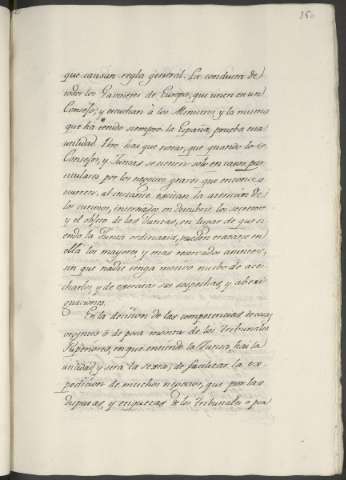 180
que causan regla general. La conducta de
todos los Gavinetes de Europa, que unen en un
Consejo, y escuchan à los Ministros, y la misma
que ha tenido siempre la España, prueba esta
utilidad. Pero hai que notar, que quando los
Consejos, y Juntas se tienen solo en casos par-
ticulares por los negocios graves que entonces o-
curren, al instante excitan la atencion de
los curiosos, interesados en descubrir los secretos
y el objeto de las Juntas, en lugar de que si-
endo la Junta ordinaria, pueden tratarse en
ella los mayores y mas reservados asuntos,
sin que nadie tenga motivo nuebo de ace-
charlos, y de exercitar sus sospechas, y aberi-
guaciones.
En la decision de las competencias
ò de poca monta de los Tribunales
Superiores, en que entiende la Junta, hai la
utilidad y será la sexta, de facilitar la ex-
pedicion de muchos negocios, que por las
disputas, y etiquetas de los Tribunales ò por